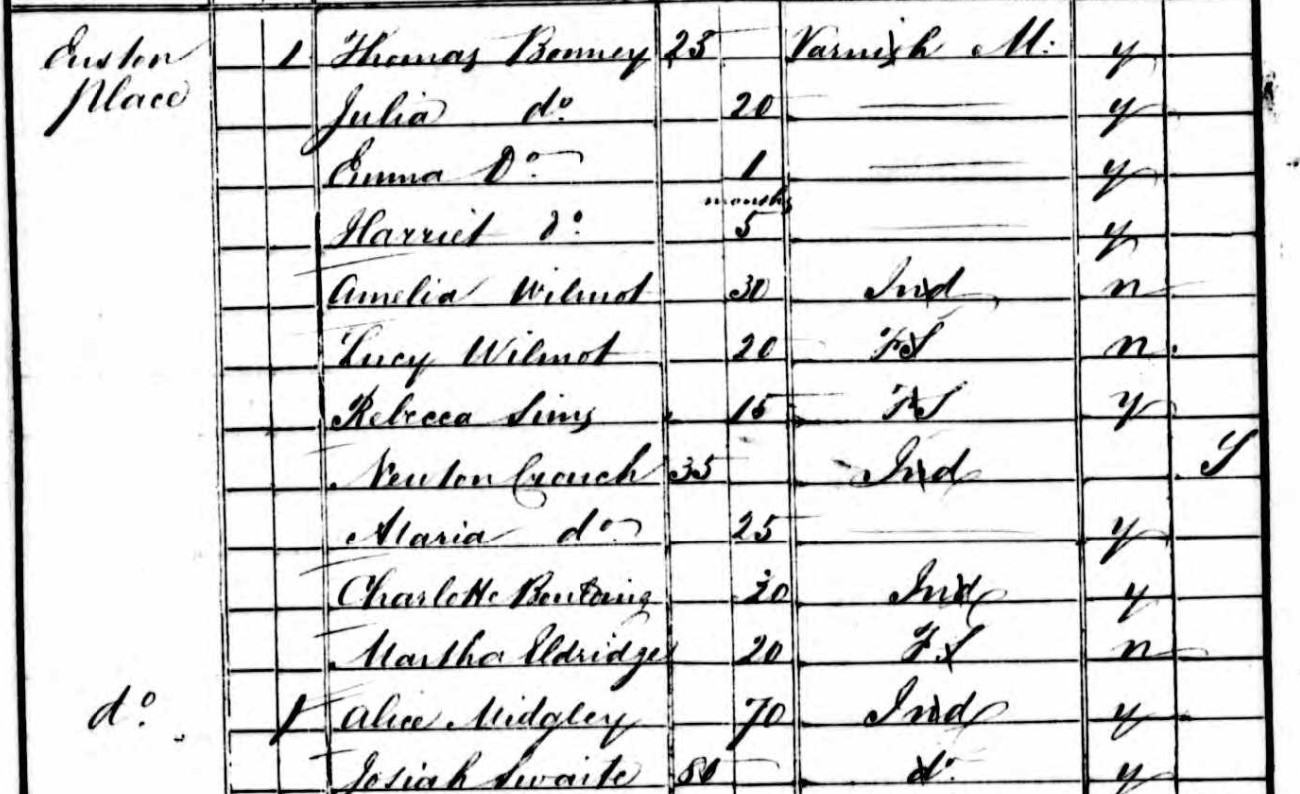 Euston 1 Thomas Bonney 25 Varnish M: y
Place Julia do 20 y
Emma Do 1 y
months
Harriet do 5 y
Amelia Wilmot 30 Ind n
Lucy Wilmot 20 FS n
Rebecca Sims 15 FS y
Newton Crouch 35 Ind S
Maria do 25 y
Charlotte 20 Ind y
Martha Eldridge 20 FS n
do 1 Alice Midgley 70 Ind y
Josiah Swaite do y